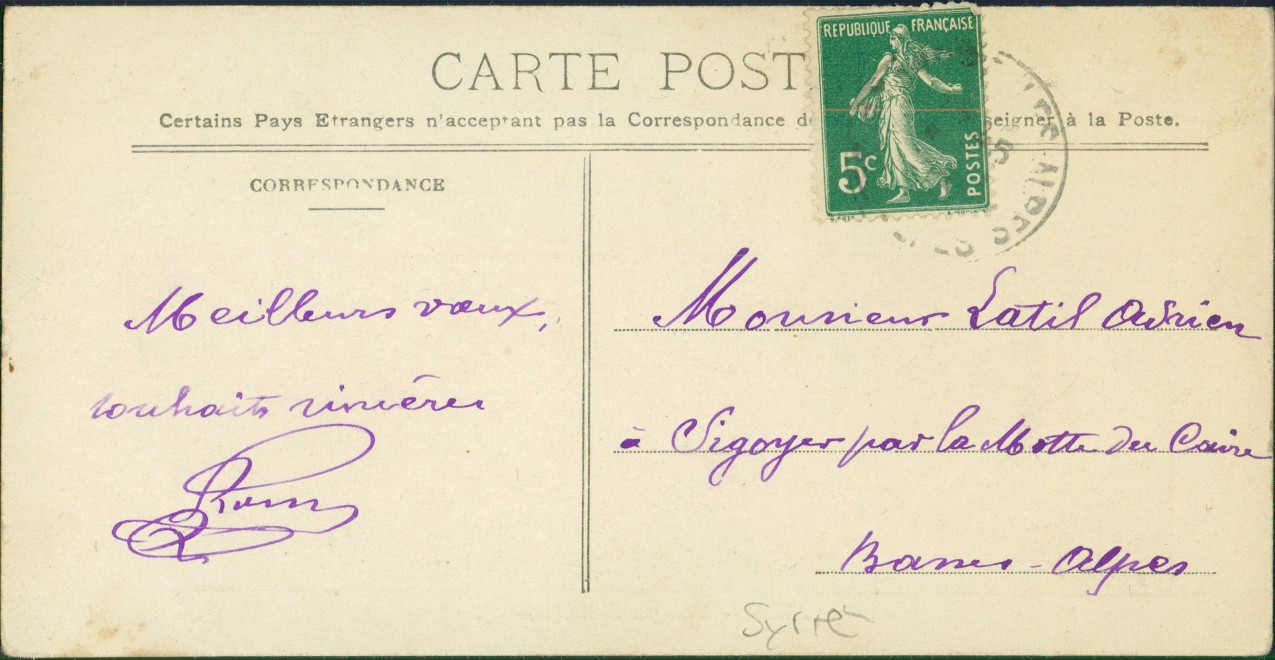 CARTE POST
Certains Pays Etrangers n'acceptant pas la Correspondance d seigner à la Poste.
CORRESPONDANCE
REPUBLIQUE FRANÇAISE
5c
POSTES
Meilleurs vœux,
souhaits sincères
Monsieur Latil Adrien
à Sigoyer par la Motte du Caire
Basses-Alpes